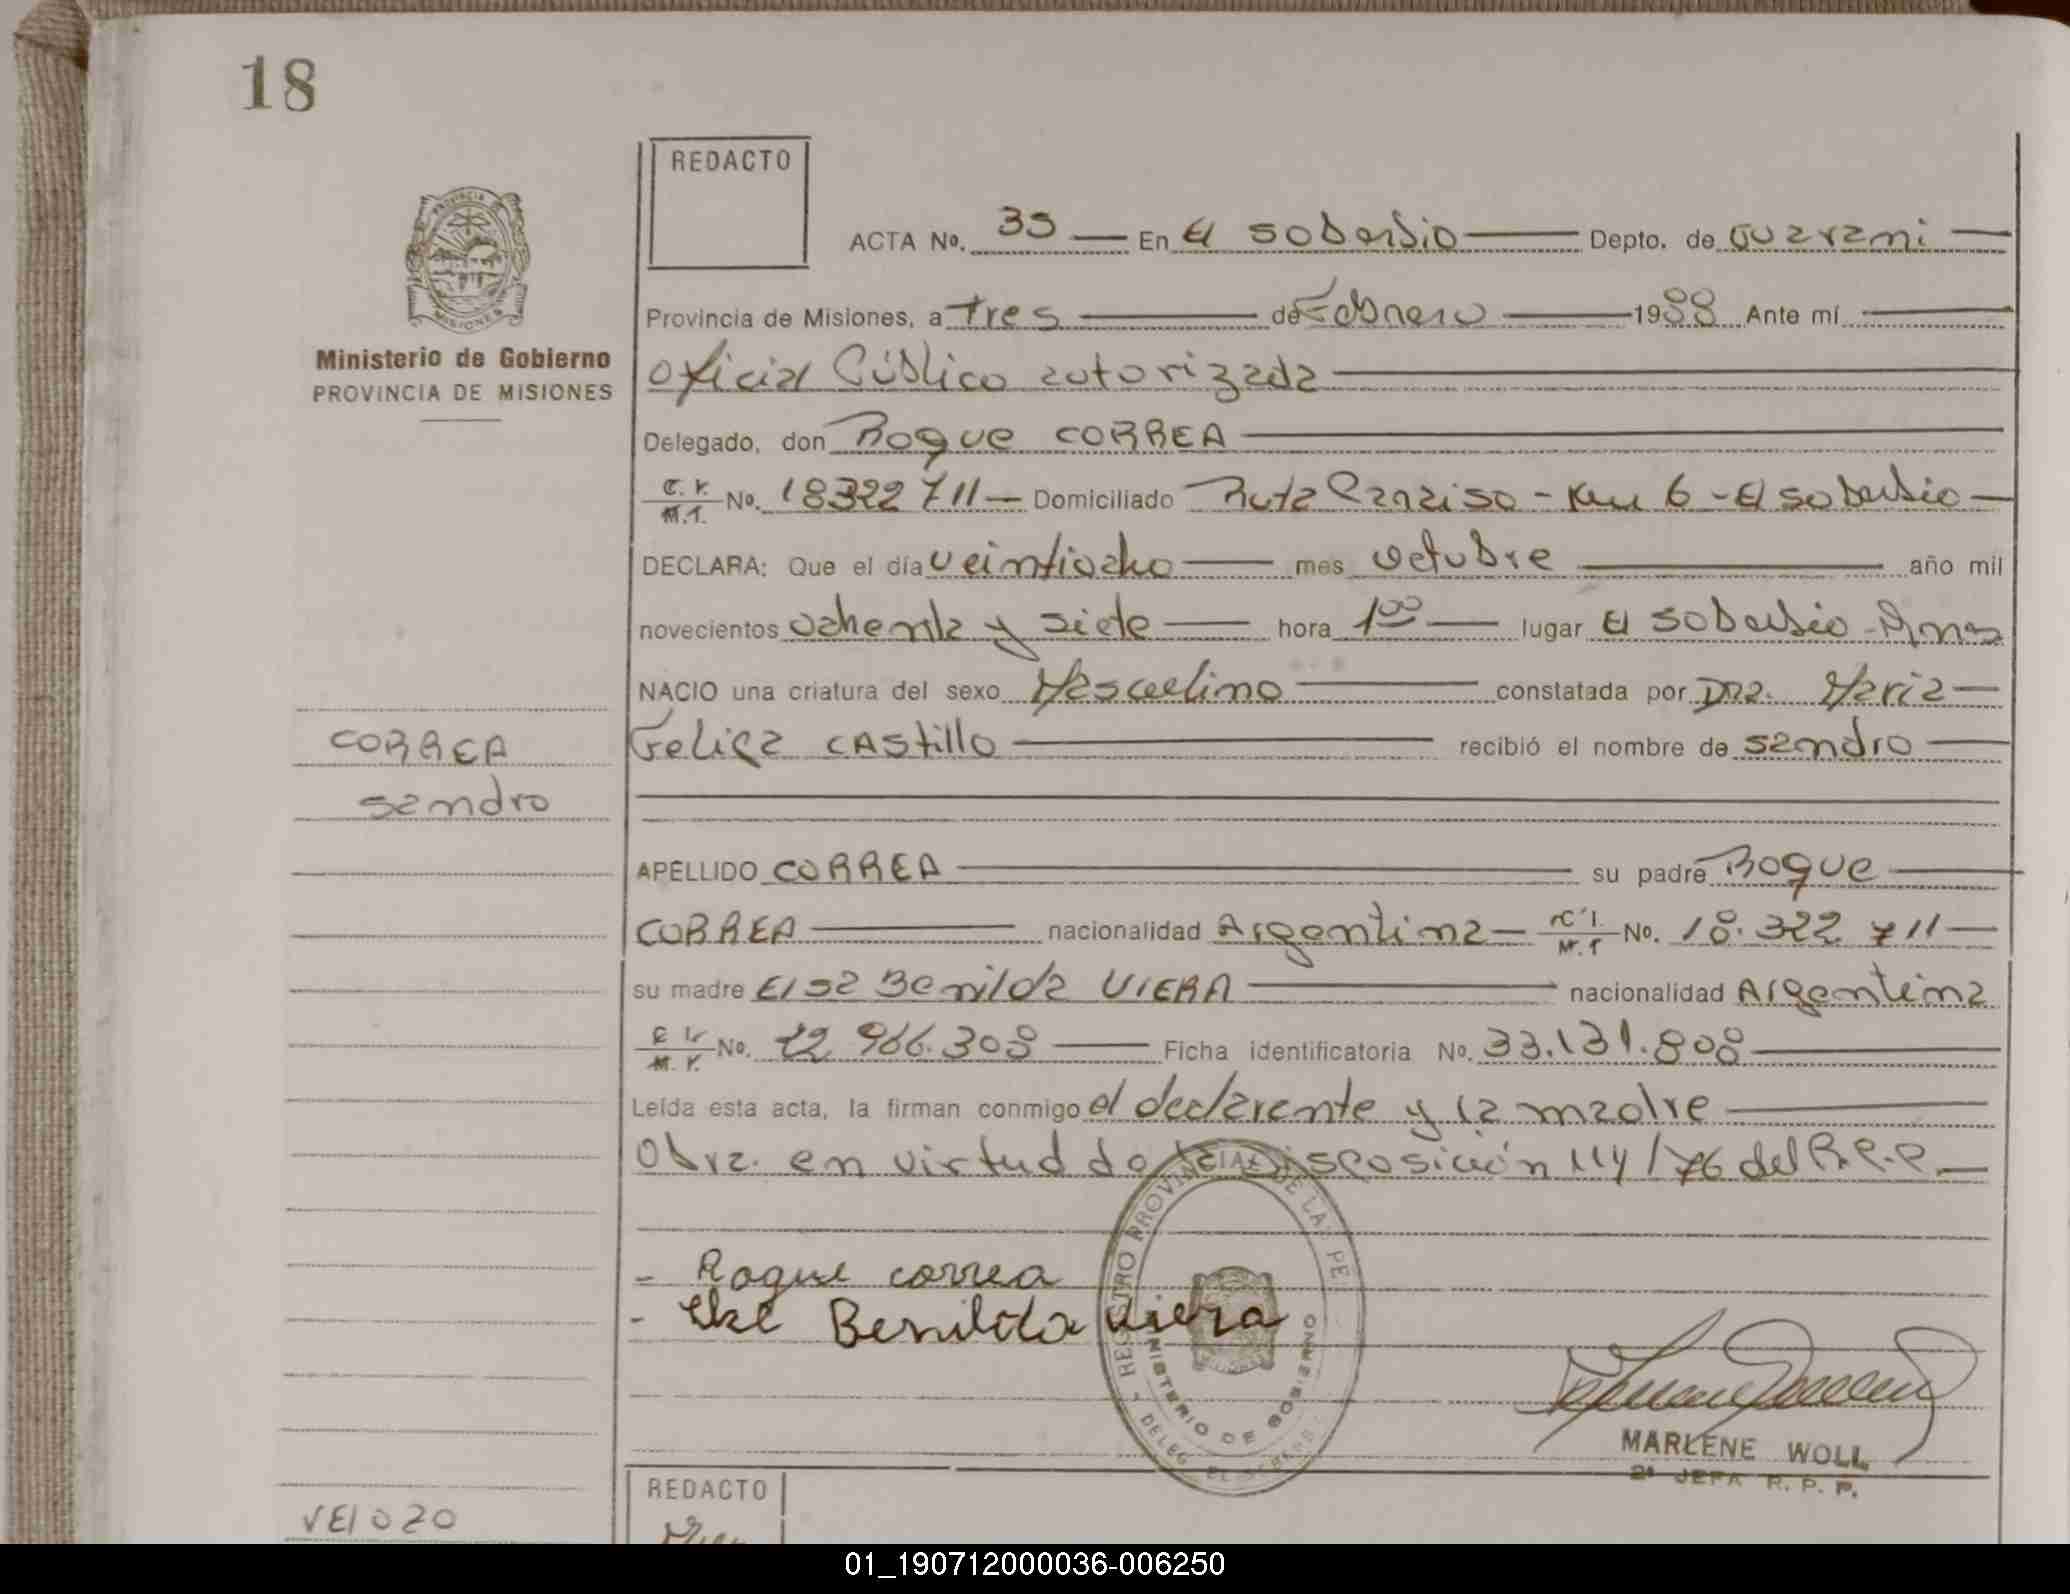 18
REDACTO
ACTA No. 35 — En El soberbio — Depto. de Guarani —
Provincia de Misiones, a Tres — de Febrero — 1988 Ante mí —
Oficial Público autorizada —
Ministerio de Gobierno
PROVINCIA DE MISIONES
Delegado, don Roque CORREA —
C.I. M.I. No. 18322711 — Domiciliado Ruta Paraiso - Km 6 - El soberbio —
DECLARA: Que el día veintiocho — mes octubre — año mil
novecientos ochenta y siete — hora 1 00 — lugar El soberbio - Mnes
NACIO una criatura del sexo Masculino — constatada por Dra. Maria —
Felisa CAStillo — recibió el nombre de sandro —
CORREA
sandro
APELLIDO CORREA — su padre Roque —
CORREA — nacionalidad Argentina — C.I. M.I No. 18.322 711 —
su madre Elsa Benilda VIERA — nacionalidad Argentina
M. I. No. 22 966.308 — Ficha identificatoria No. 33.131.808 —
Leída esta acta, la firman conmigo el declarante y la madre —
Obra. en virtud de la Disposición 114/76 del R.P.P. —
- Roque correa
- Benilda Viera
REGISTRO PROVINCIAL DE LA PE
MINISTERIO DE GOBIERNO
DELEG. EL SOBERB
MARLENE WOLL
2ª JEFA R. P. P.
REDACTO
VELOZO
01_190712000036-006250